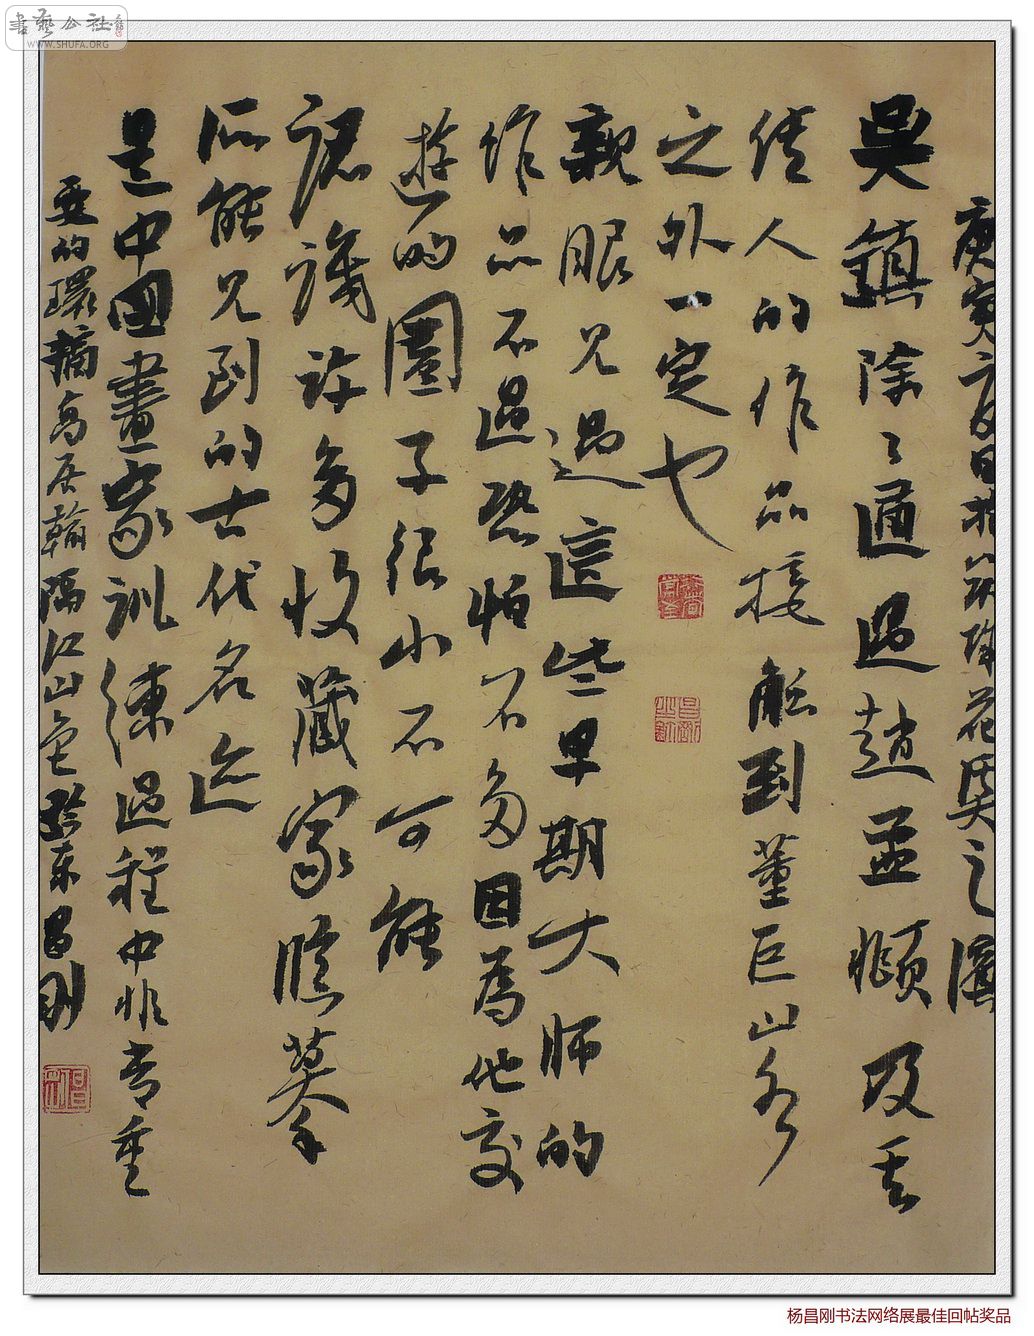 書藝公社
WWW.SHUFA.ORG
庚寅六日於花溪之濱
吴鎮除了通過趙孟頫及其
人的作品接触到董巨山水
之外一定也
親眼見過這些早期大师的
作品不過恐怕不多因為他交
遊的圈子很小不可能
認識許多收藏家臨摹
所能見到的古代名迹
是中國畫家訓練過程中非常重
要的環摘高居翰隔江山色黔東昌刚
杨昌刚书法网络展最佳回帖奖品